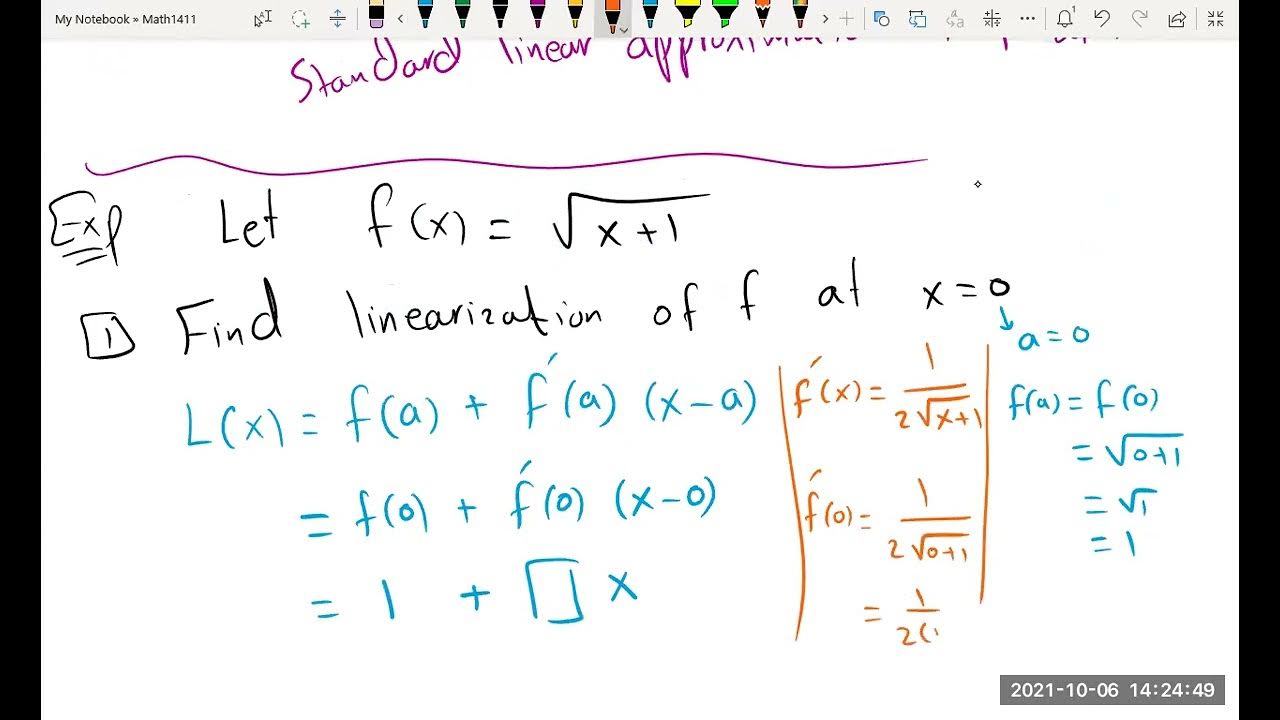 My Notebook » Math1411
Standard linear
Exp Let f(x) = √(x+1)
1 Find linearization of f at x=0
a=0
L(x) = f(a) + f'(a) (x-a)
= f(0) + f'(0) (x-0)
= 1 + □ x
f'(x) = 1/(2√(x+1))
f'(0) = 1/(2√(0+1))
= 1/2(1
f(a) = f(0)
= √(0+1)
= √1
= 1
2021-10-06 14:24:49